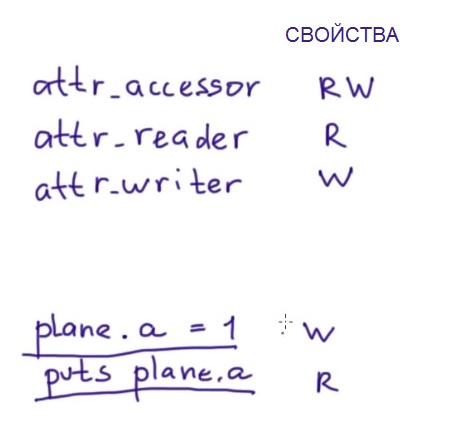 СВОЙСТВА
attr_accessor RW
attr_reader R
attr_writer W
plane.a = 1 W
puts plane.a R